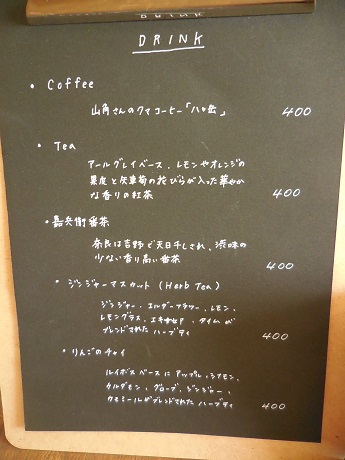 DRINK
• Coffee
山角さんのクマコーヒー「八ヶ岳」 400
• Tea
アールグレイベース、レモンやオレンジの
果皮と矢車菊の花びらが入った華やか
な香りの紅茶 400
• 嘉兵衛番茶
奈良は吉野で天日干しされ、渋味の
少ない香り高い番茶 400
• ジンジャーマスカット (Herb Tea)
ジンジャー、エルダーフラワー、レモン、
レモングラス、エキナセア、タイムが
ブレンドされたハーブティ 400
• りんごのチャイ
ルイボスベースにアップル、シナモン、
カルダモン、グローブ、ジンジャー、
カモミールがブレンドされたハーブティ 400